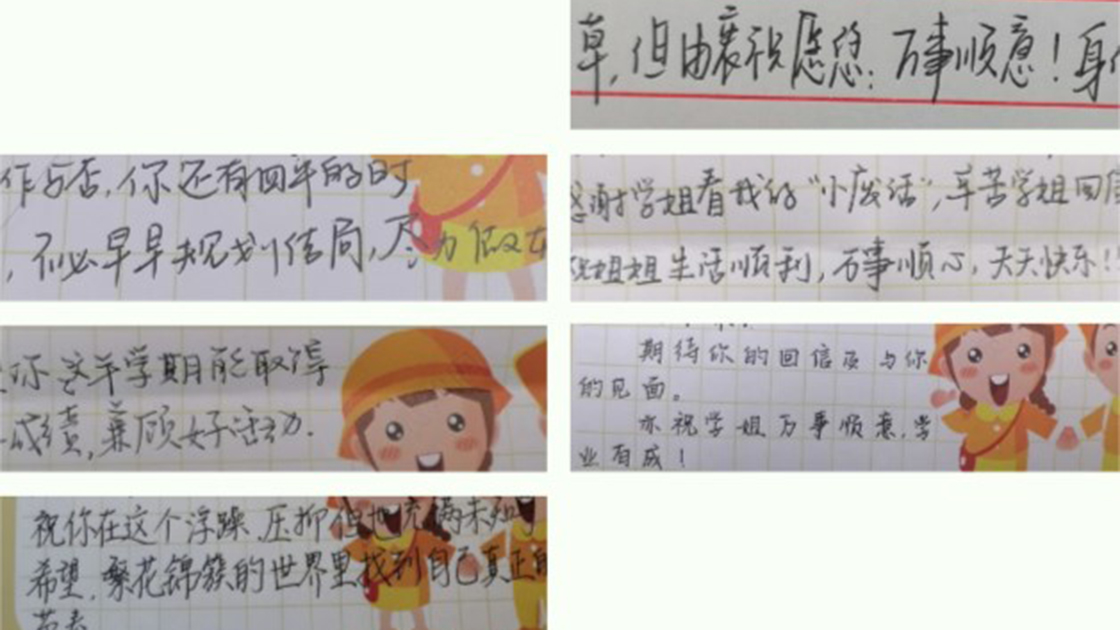 草,但由衷祝愿您:万事顺意!身
作与否,你还有四年的时
,不必早早规划结局,尽力做
感谢学姐看我的“小废话”,辛苦学姐回信
祝姐姐生活顺利,万事顺心,天天快乐!
你这半学期能取得
成绩,兼顾好活动.
期待你的回信及与你
的见面。
亦祝学姐万事顺意,学
业有成!
祝你在这个浮躁、压抑但也充满未知
希望,繁花锦簇的世界里找到自己真正的